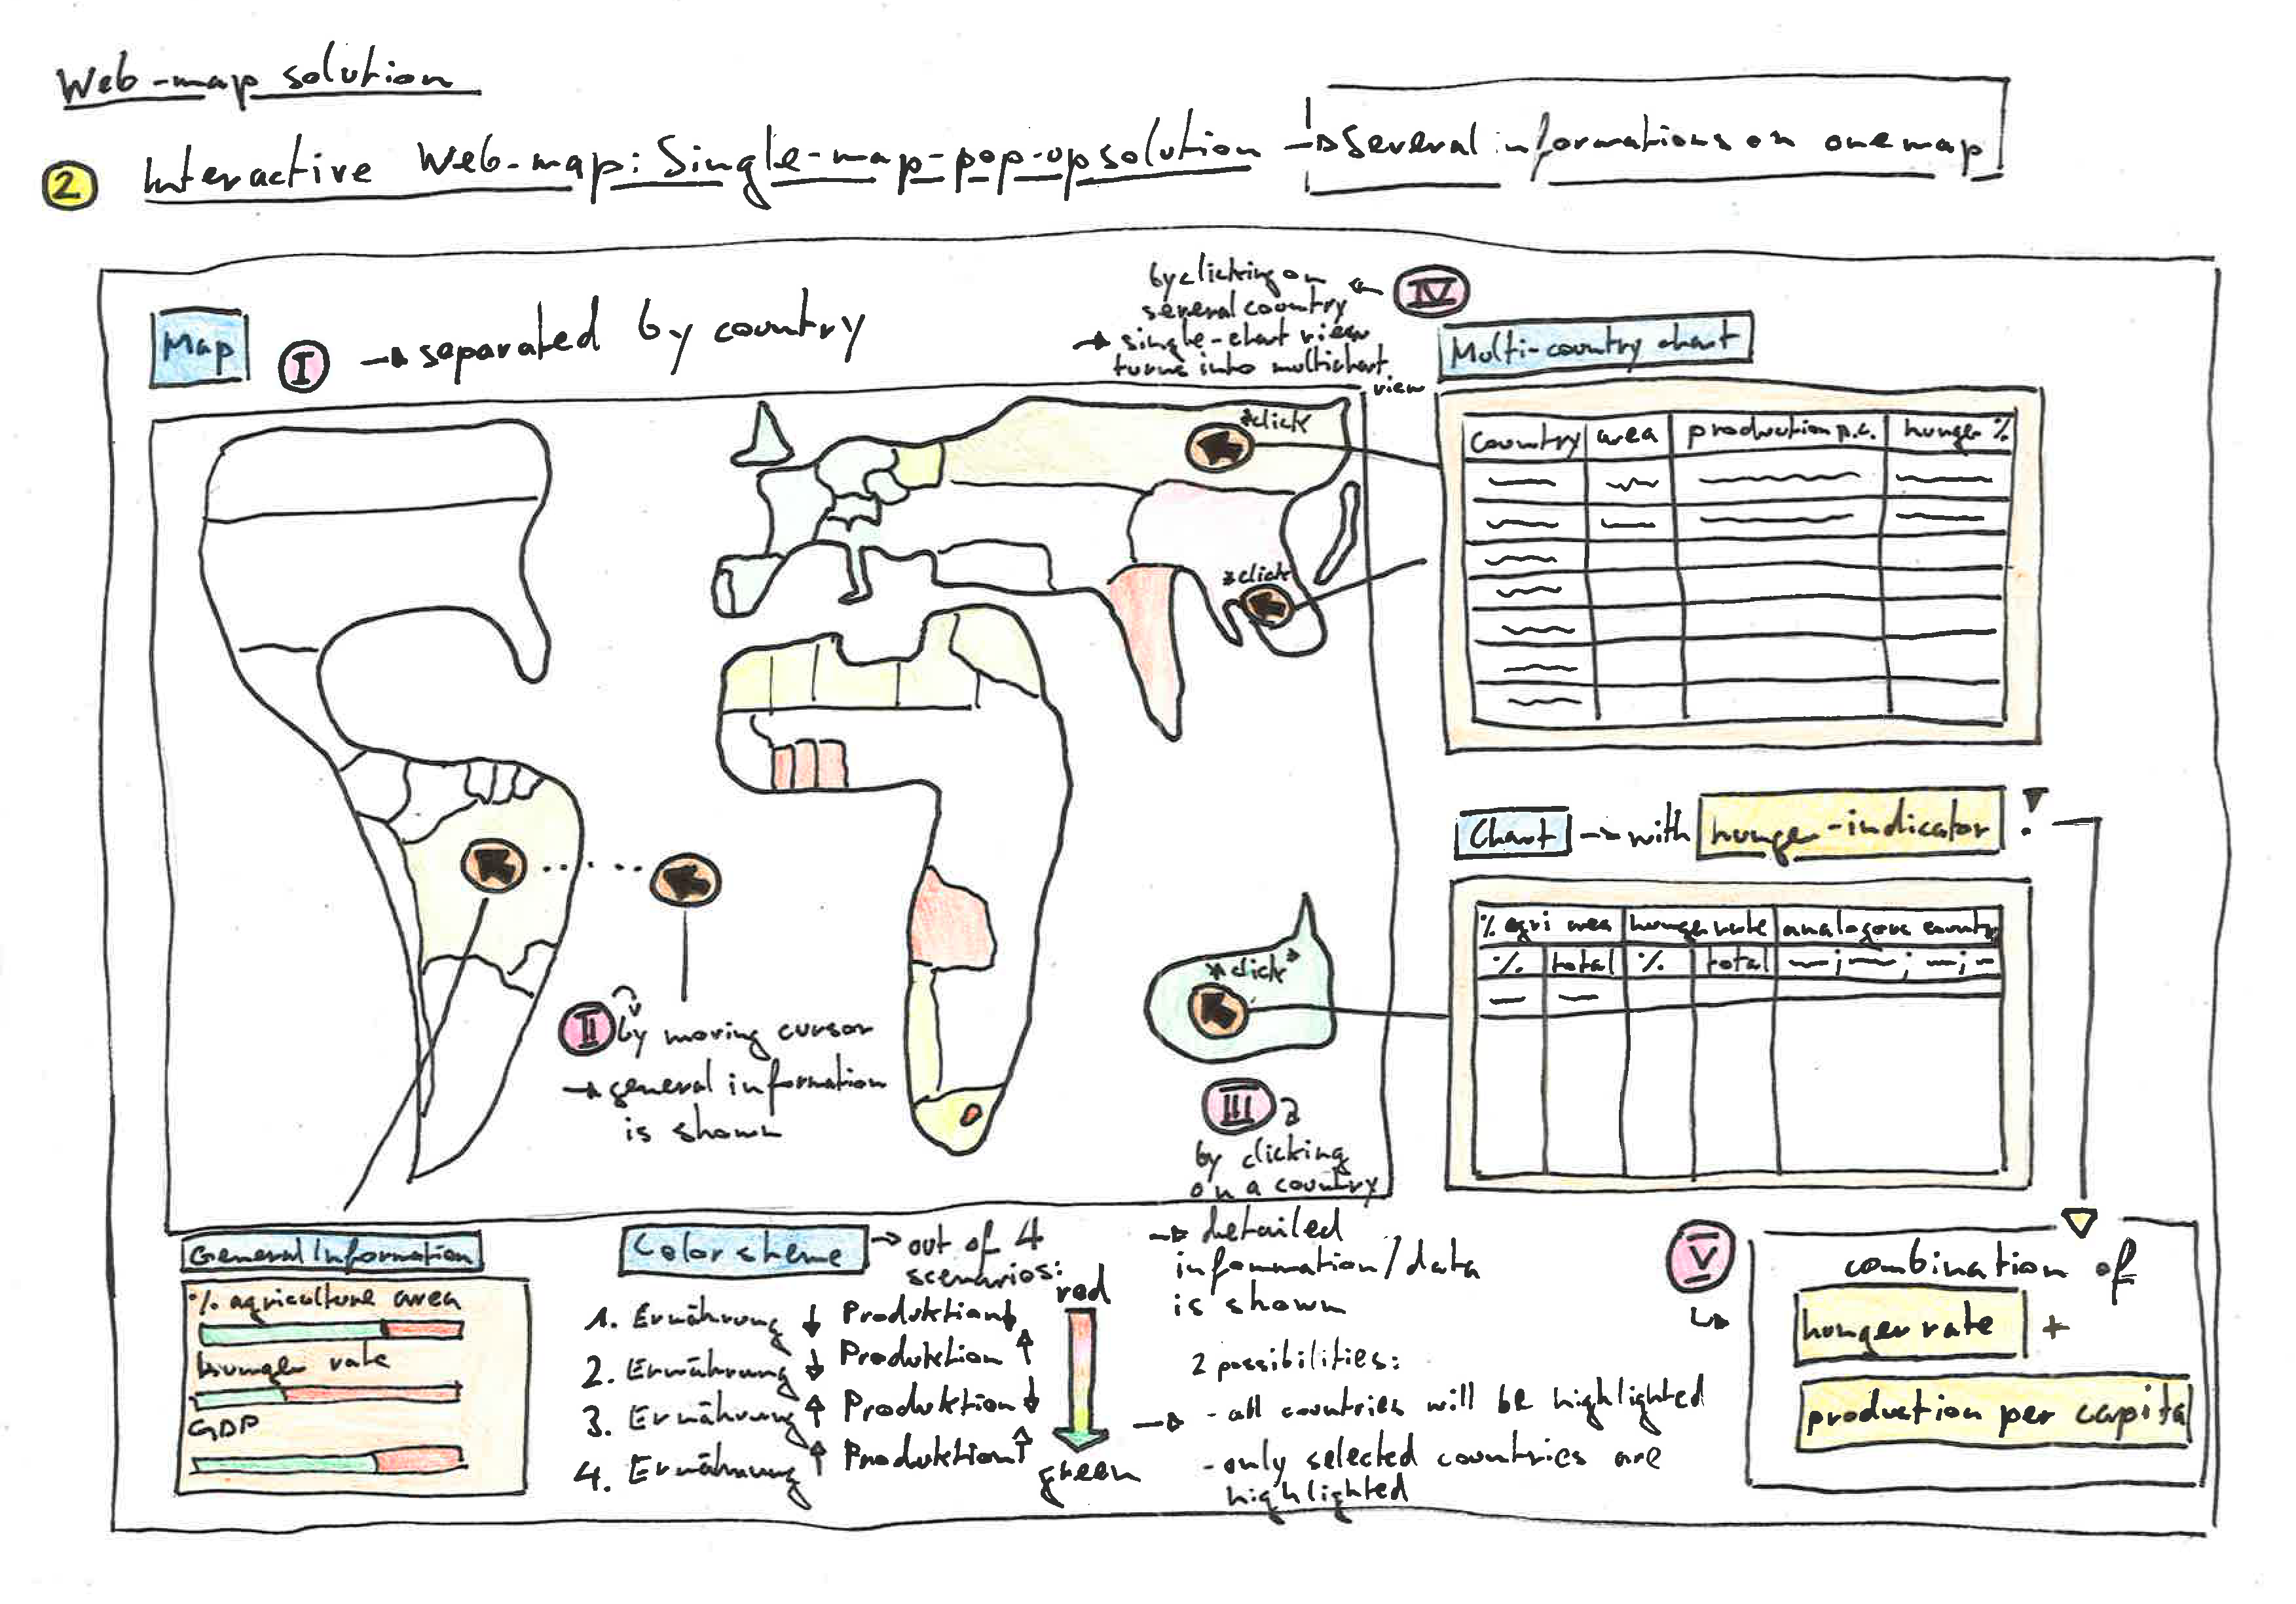 Web-map solution
2 Interactive Web-map: Single-map-pop-up solution → Several informations on one map
Map I → separated by country
by clicking on ← IV
several country
→ single-chart view
turns into multichart
view
Multi-country chart
country area production p.c. hunger %
"click
"click
Chart → with hunger-indicator !
% agri area hunger rate analogous country
% total % total
"click"
II by moving cursor
→ general information
is shown
III
by clicking
on a country
→ detailed
information/data
is shown
2 possibilities:
→ - all countries will be highlighted
- only selected countries are
highlighted
General Information
% agriculture area
hunger rate
GDP
Color sheme → out of 4
scenarios:
red
1. Ernährung ↓ Produktion ↓
2. Ernährung ↓ Produktion ↑
3. Ernährung ↑ Produktion ↓
4. Ernährung ↑ Produktion ↑
green
V
combination of
hunger rate +
production per capita